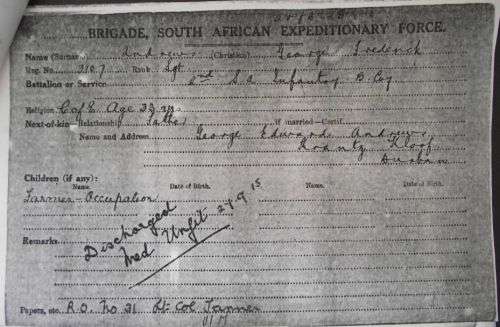 BRIGADE, SOUTH AFRICAN EXPEDITIONARY FORCE.
Name (Surname) Andrews (Christian) George Frederick
Reg. No. 3107 Rank Sgt
Battalion or Service 2nd S.A. Infantry B Coy
Religion C of E Age 32
Next-of-kin—Relationship Father If married—Certif.
Name and Address George Edward Andrews
Krantz Kloof
Durban
Children (if any):
Name. Date of Birth. Name. Date of Birth.
Farmer - Occupation
Discharged
Med Unfit 27 9 15
Remarks
Papers, etc. R.O. No 31 Lt Col Tanner